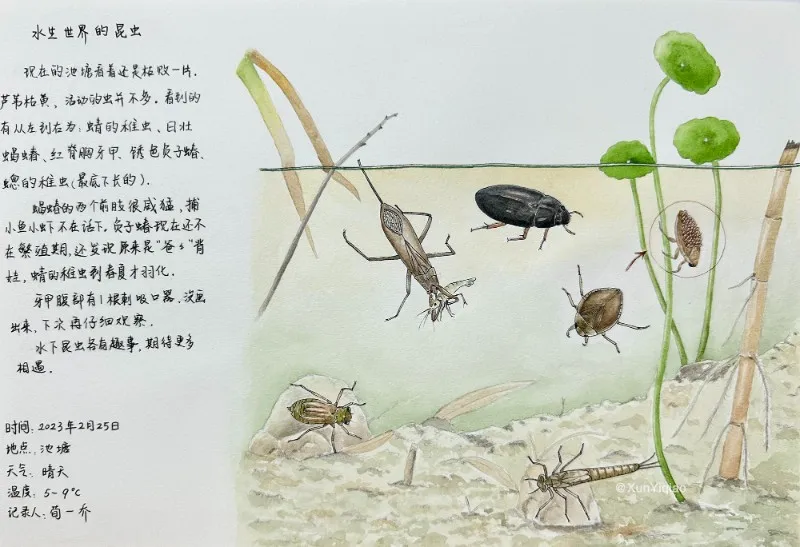 水生世界的昆虫
现在的池塘看着还是枯败一片.
芦苇枯黄、活动的虫并不多。看到的
有从左到右为:蜻的稚虫、日壮
蝎蝽、红脊胸牙甲、锈色负子蝽、
蟌的稚虫(最底下长的).
蝎蝽的两个前肢很威猛,捕
小鱼小虾不在话下,负子蝽现在还不
在繁殖期,还发现原来是"爸爸"背
娃,蜻的稚虫到春夏才羽化.
牙甲腹部有1根刺吸口器,没画
出来,下次再仔细观察.
水下昆虫各有趣事,期待更多
相遇.
时间:2023年2月25日
地点:池塘
天气:晴天
温度:5~9℃
记录人:荀一乔
@XunYiqiao